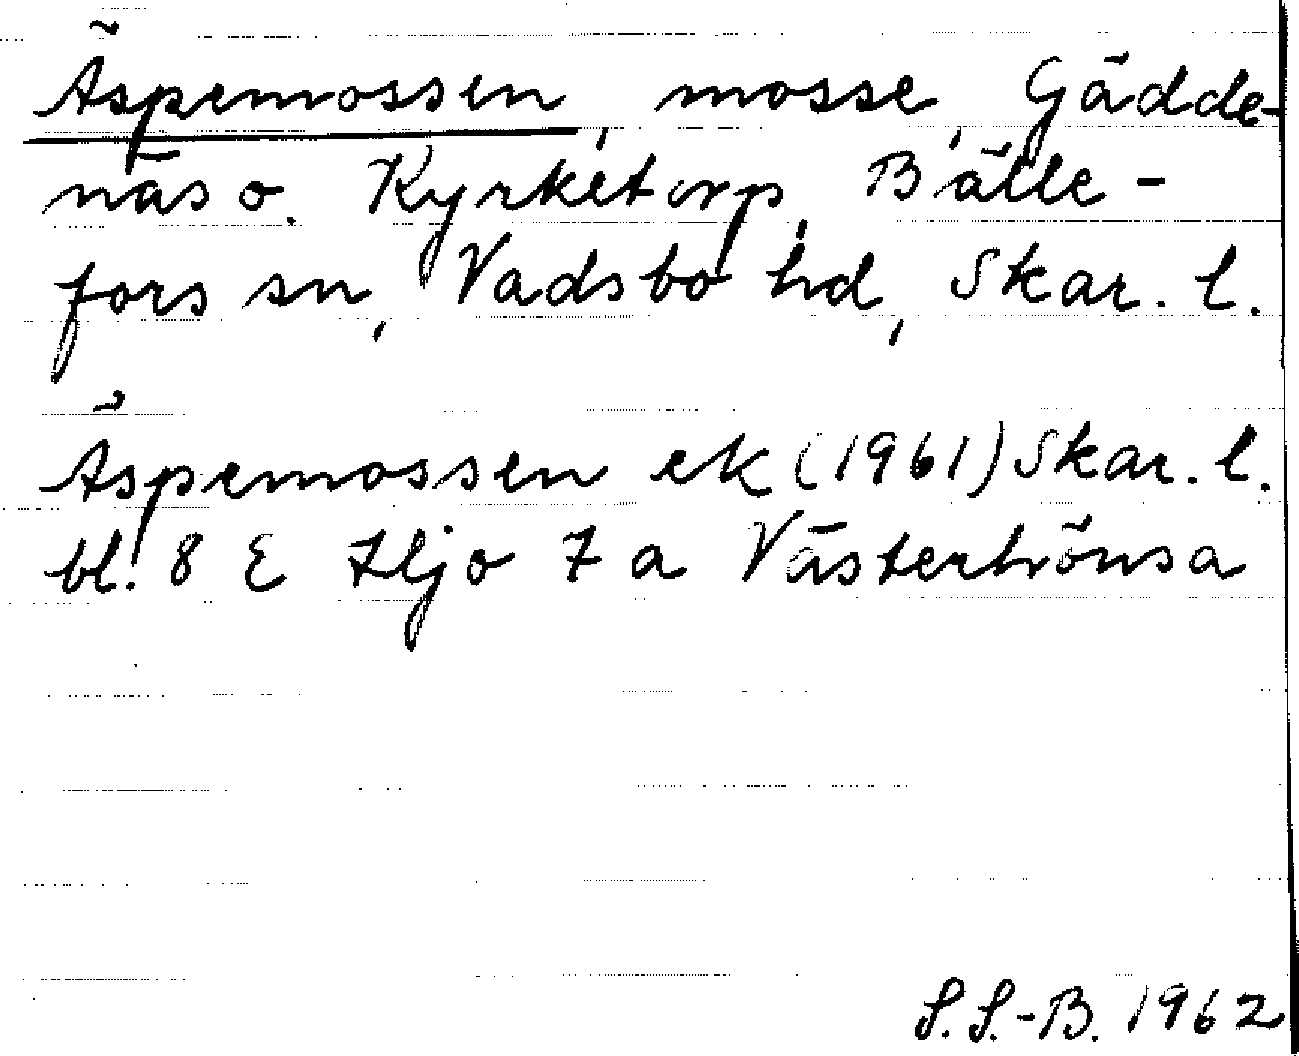 Äspemossen, mosse, Gädde-
näs o. Kyrketorp, Bälle-
fors sn, Vadsbo hd, Skar. l.
Äspemossen ek (1961) Skar. l.
bl. 8 E Hjo 7 a Västerhönsa
S. S.-B. 1962